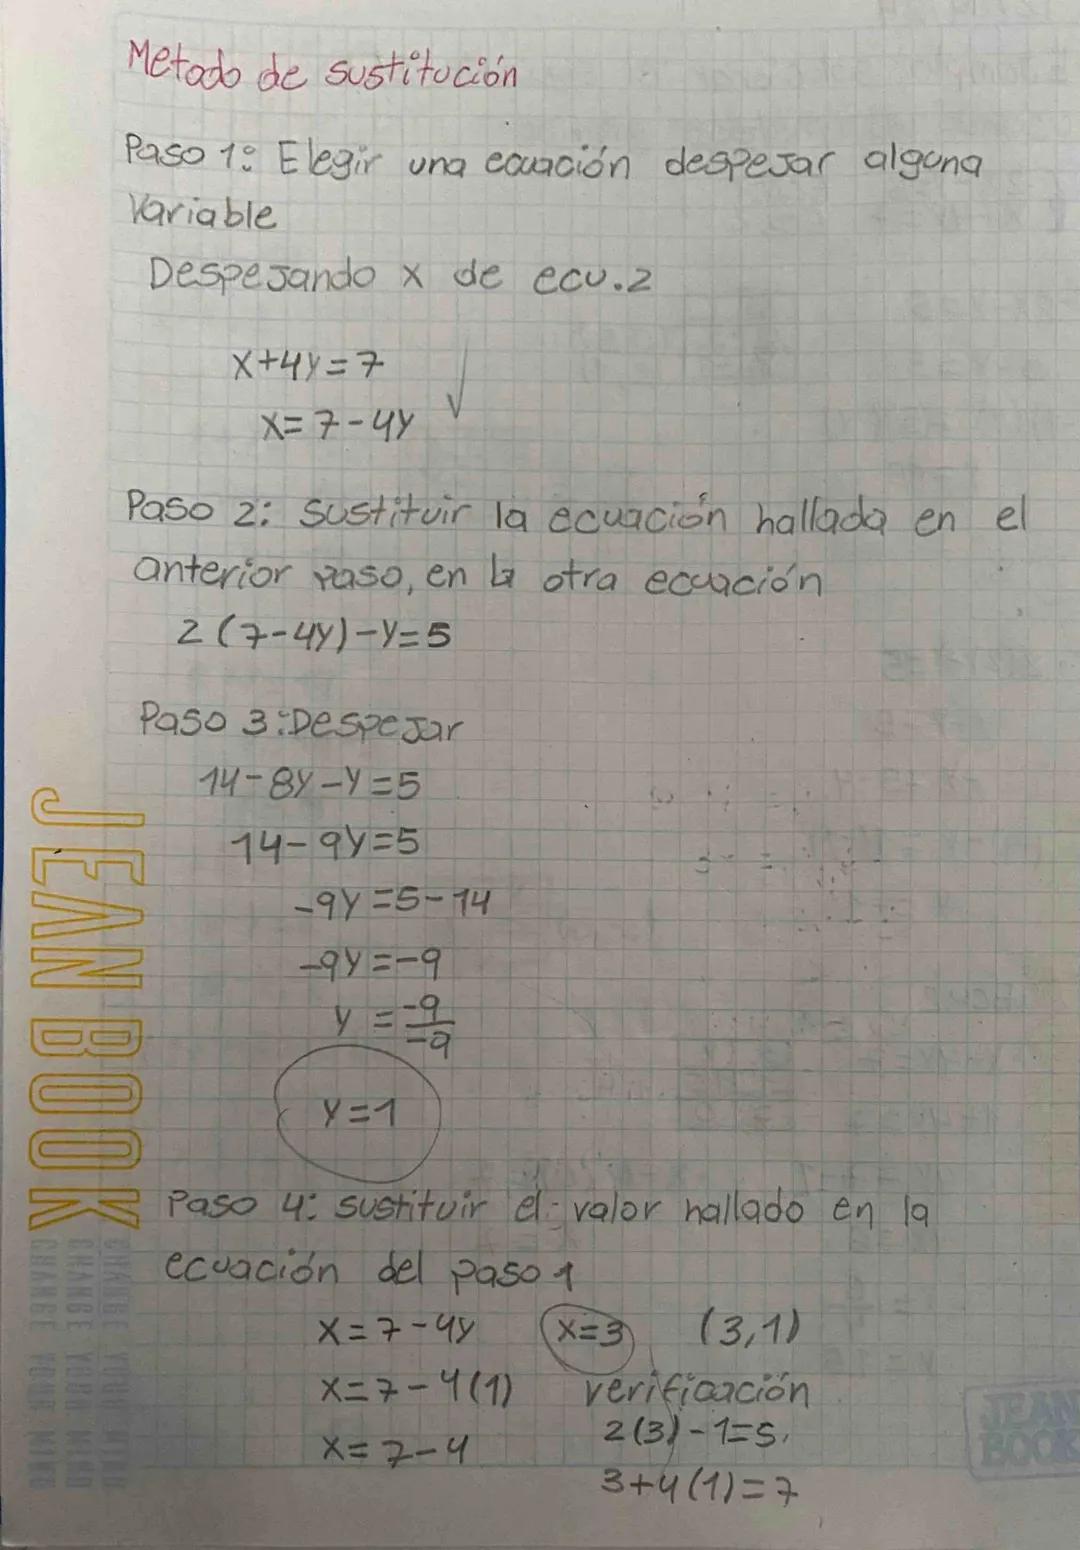 Metodo de sustitución
Paso 1: Elegir una ecuación despejar alguna
variable
Despejando x de ecu.2
x+4y=7
x=7-4y
Paso 2: sustituir la ecuación hallada en el
anterior paso, en la otra ecuación
2(7-4y)-y=5
Paso 3: Despejar
14-8y-y=5
14-9y=5
-9y=5-14
-9y=-9
y=-9/-9
y=1
Paso 4: sustituir el valor hallado en la
ecuación del paso 1
x=7-4y x=3 (3,1)
x=7-4(1) verificación
x=7-4 2(3)-1=5.
3+4(1)=7
JEAN BOOK
CHANGE YOUR MIND
CHANGE YOUR MIND
CHANGE YOUR MIND
JEAN
BOOK